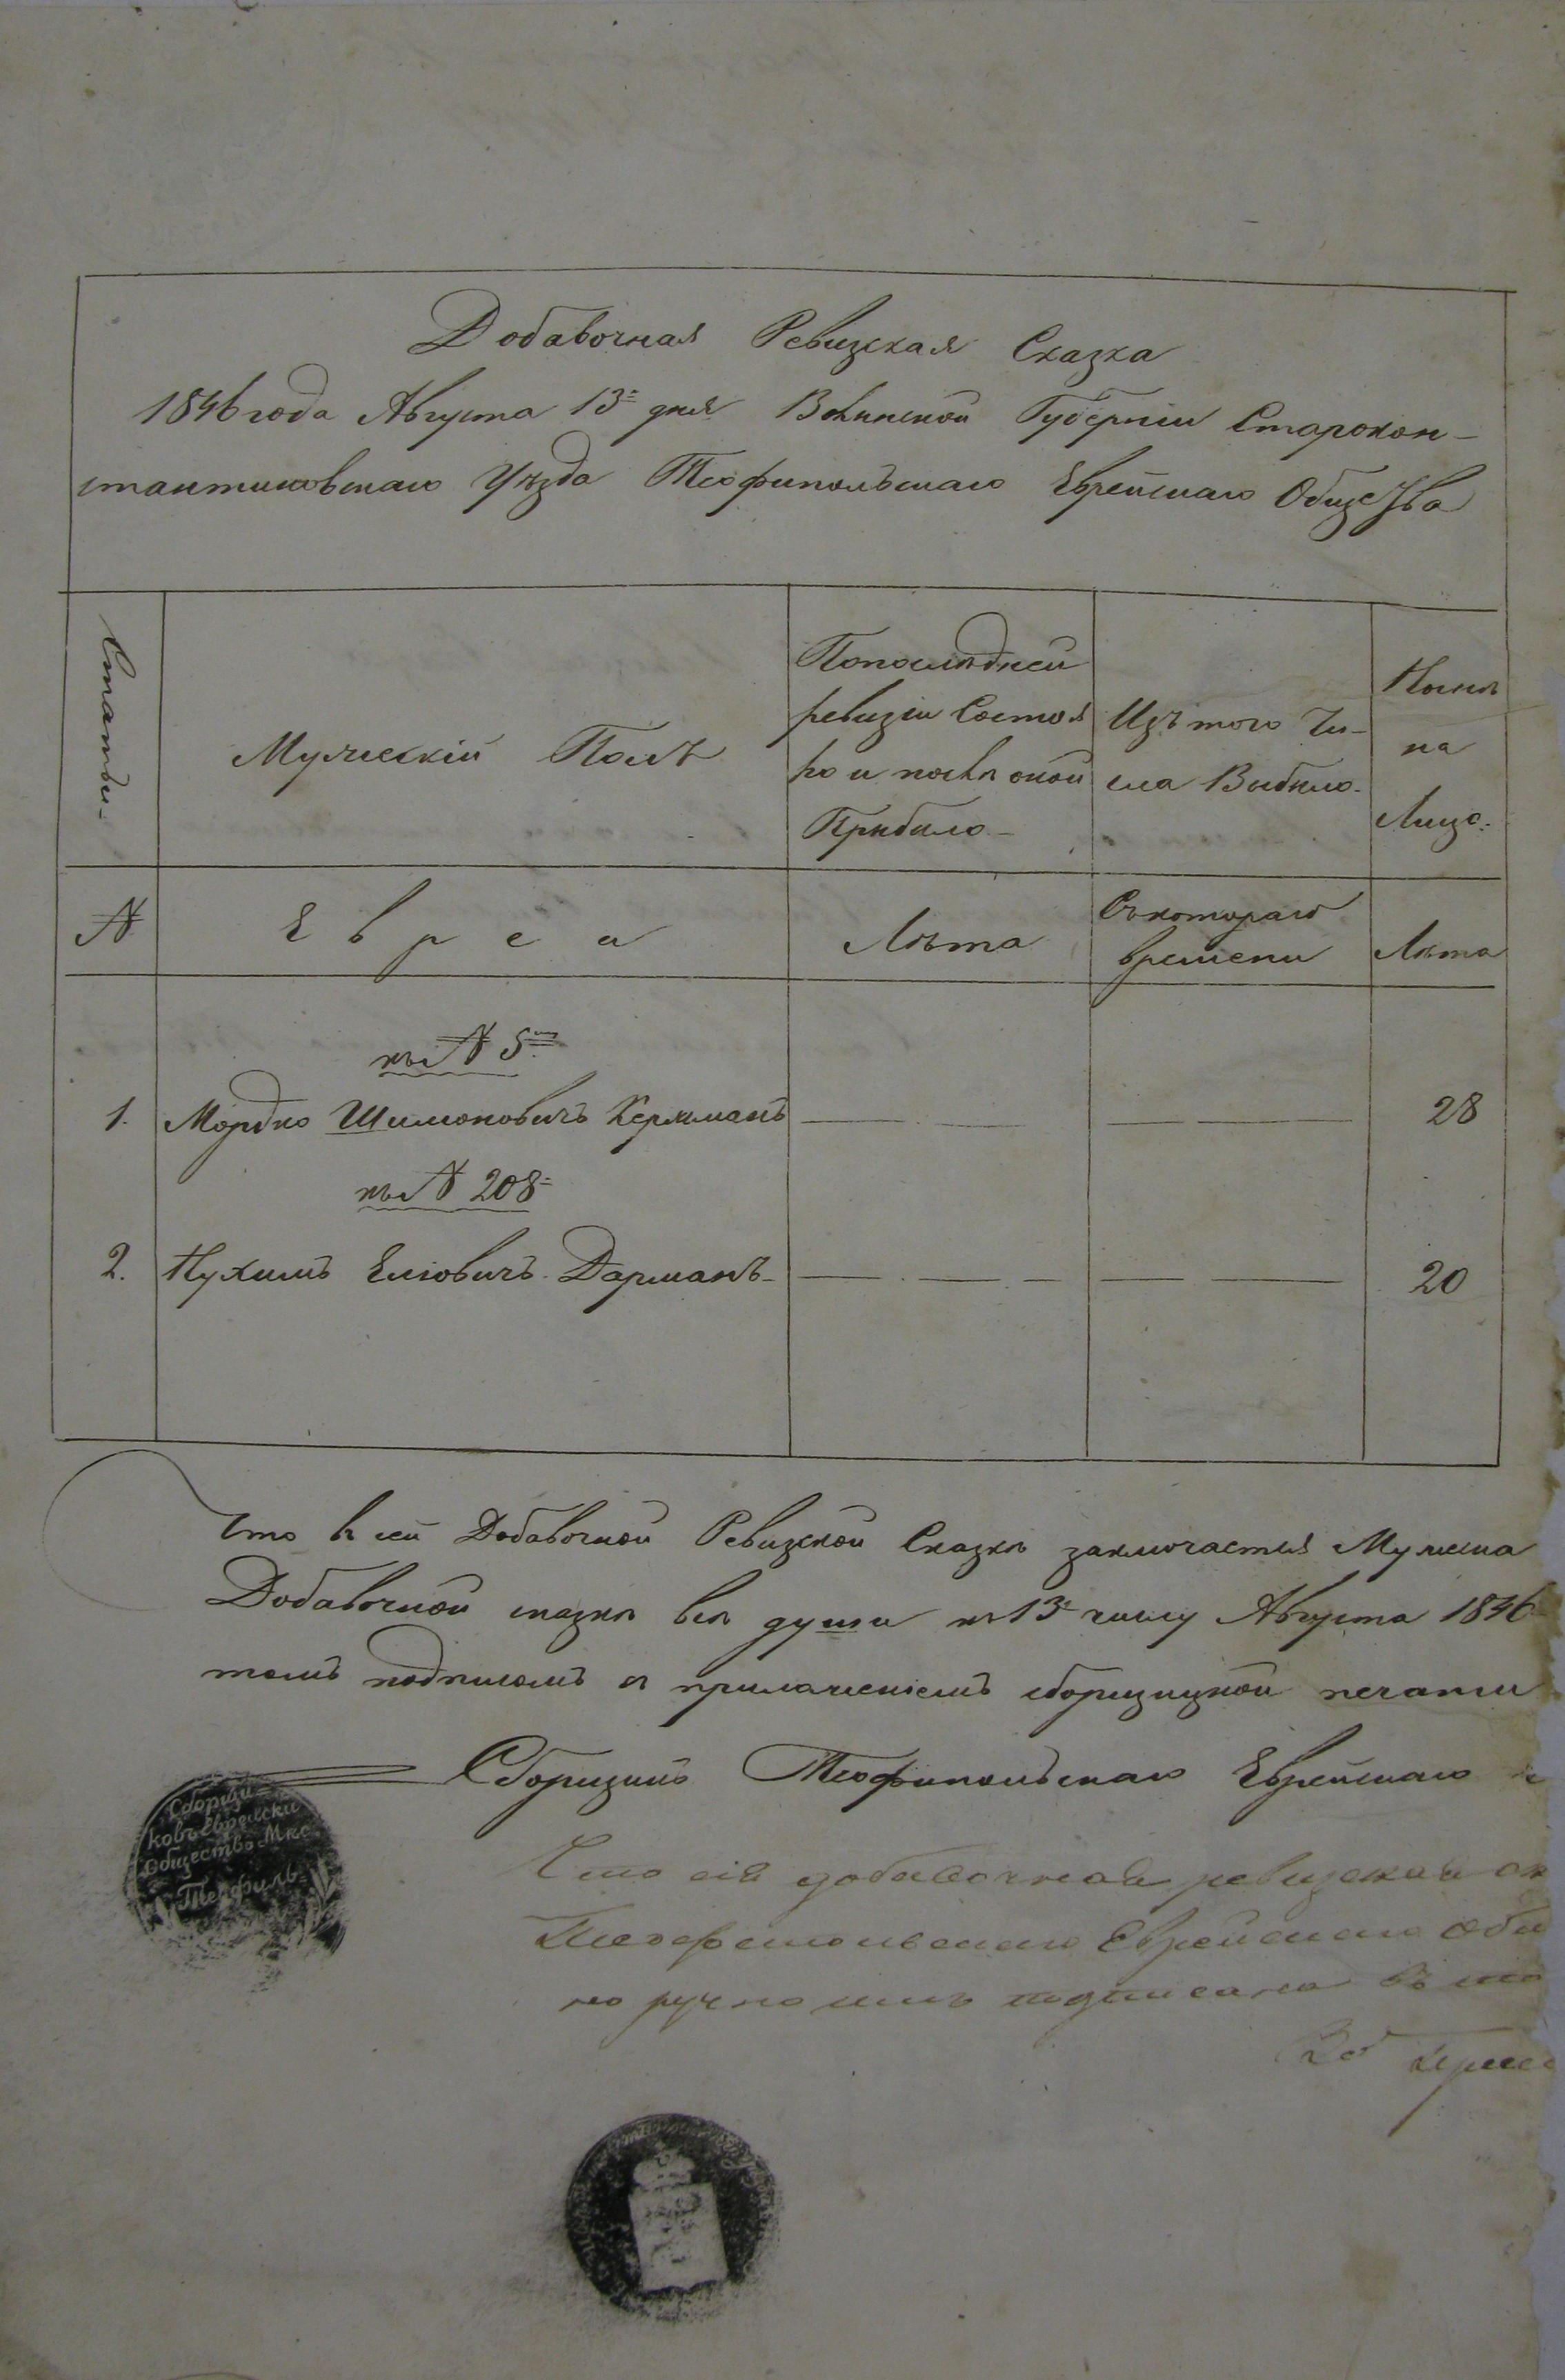 Добавочная Ревизская Сказка
1846 года Августа 13= дня Волынской Губерніи Старокон-
стантиновскаго Уѣзда Теофипольскаго Еврейскаго Общества
Статьи-
Мужескій Полъ
Попослѣдней
ревизіи Состоя
ло и послѣ оной
Прибыло-
Изъ того Чи-
сла Выбыло-
Нынѣ
на
Лицо:
№
Евреи
Лѣта
Съкотораго
времени
Лѣта
къ № 5=
1. Мордко Шимоновичъ Кержманъ 28
къ № 208=
2. Нухимъ Еліовичъ Дарманъ- 20
Что в сей Добавочной Ревизской Сказкѣ заключается Мужеска
Добавочной сказкѣ всѣ души къ 13= числу Августа 1846
подписомъ и приложеніемъ сборщицкой печати
Сборщикъ Теофипольскаго Еврейскаго
Сборщи
ковъ Еврейски
Общество Мѣс
Теофиль
Что сія добавочная ревизская ск
Теофипольскаго Еврейскаго Общ
но ручно имъ подписана въ